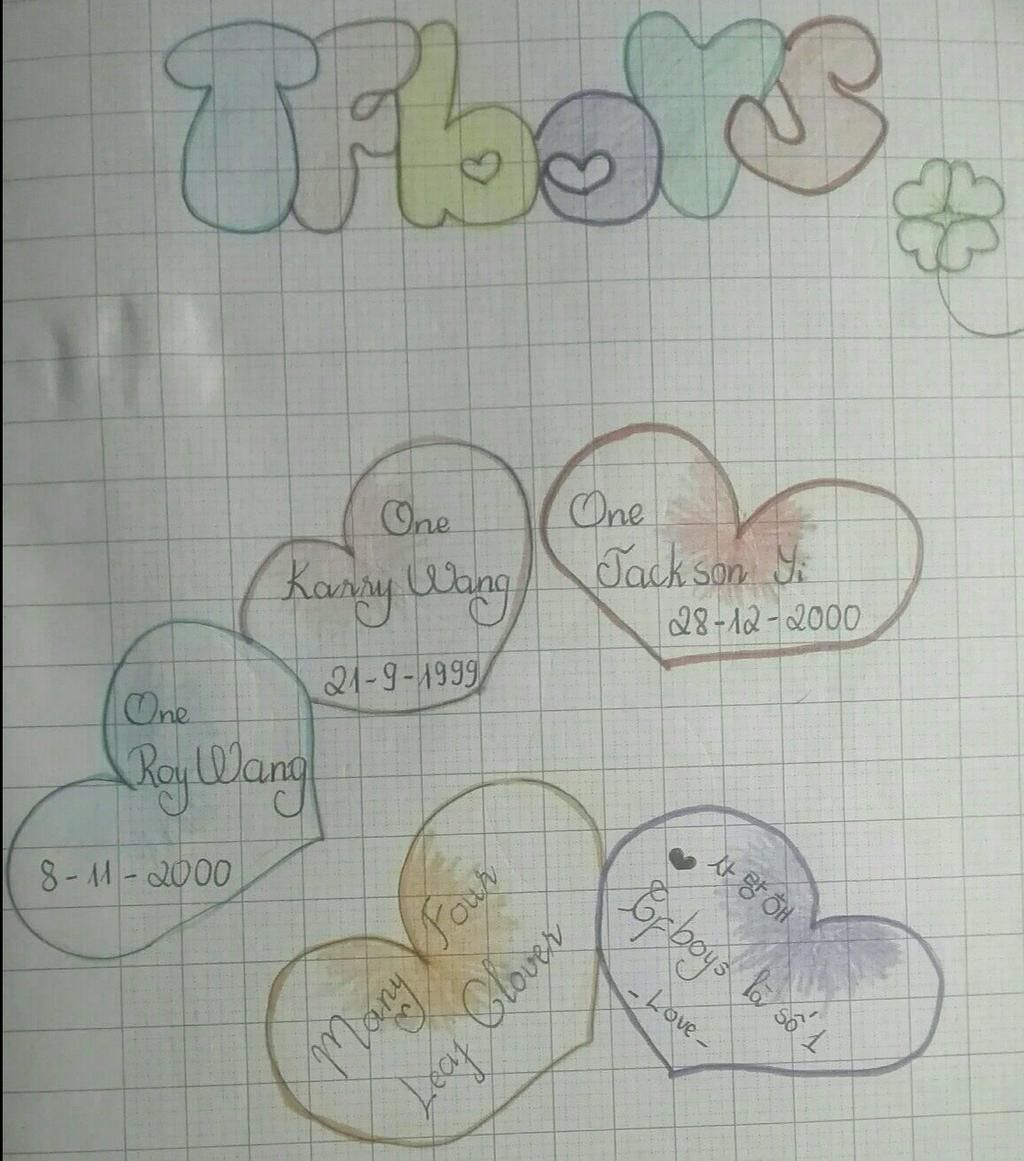 TFboYS
One
Karry Wang
21-9-1999
One
Jackson Yi
28-12-2000
One
Roy Wang
8-11-2000
Many Four
Leaf Clover
♥ 사랑해
Tfboys là số 1
-Love-